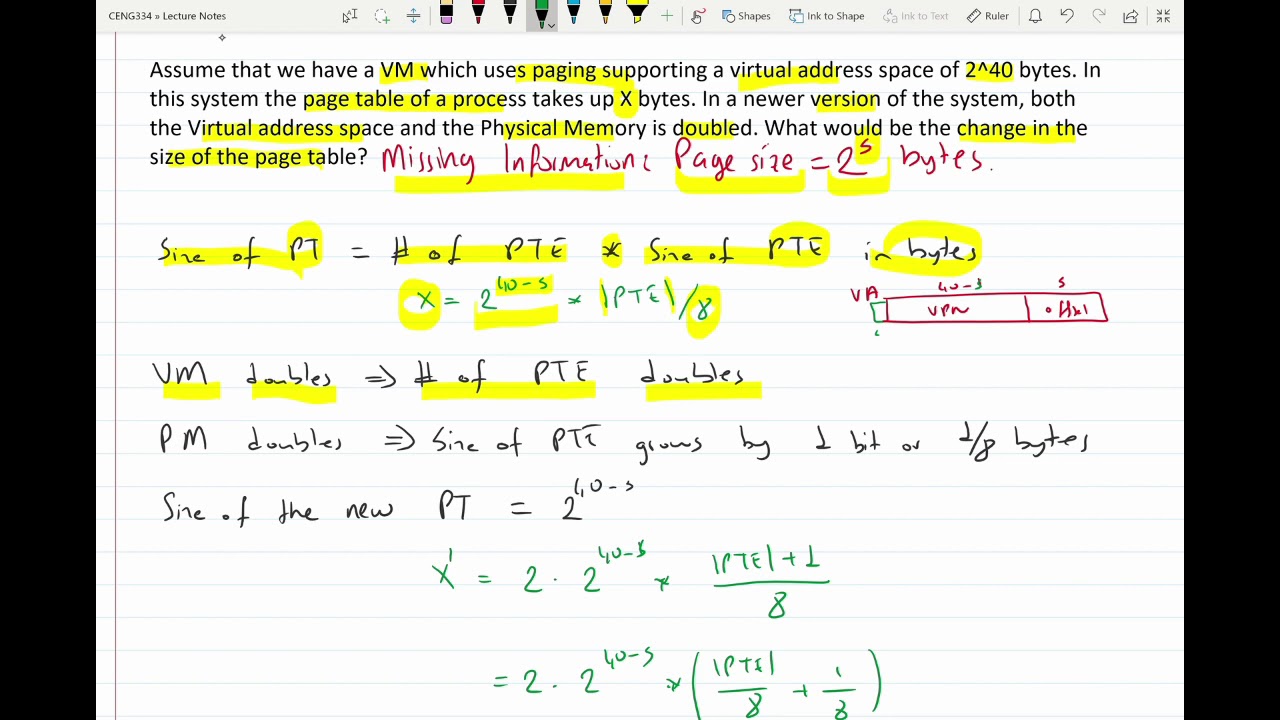 CENG334 » Lecture Notes
Shapes
Ink to Shape
Ink to Text
Ruler
Assume that we have a VM which uses paging supporting a virtual address space of 2^40 bytes. In
this system the page table of a process takes up X bytes. In a newer version of the system, both
the Virtual address space and the Physical Memory is doubled. What would be the change in the
size of the page table? Missing Information: Page size = 2^s bytes.
Size of PT = # of PTE * Size of PTE in bytes
X = 2^40-s * |PTE|/8
VA 40-s s
VPN offset
VM doubles => # of PTE doubles
PM doubles => Size of PTE grows by 1 bit or 1/8 bytes
Size of the new PT = 2^40-s
X' = 2 . 2^40-s * |PTE| + 1
8
= 2 . 2^40-s * ( |PTE| / 8 + 1 / 8 )